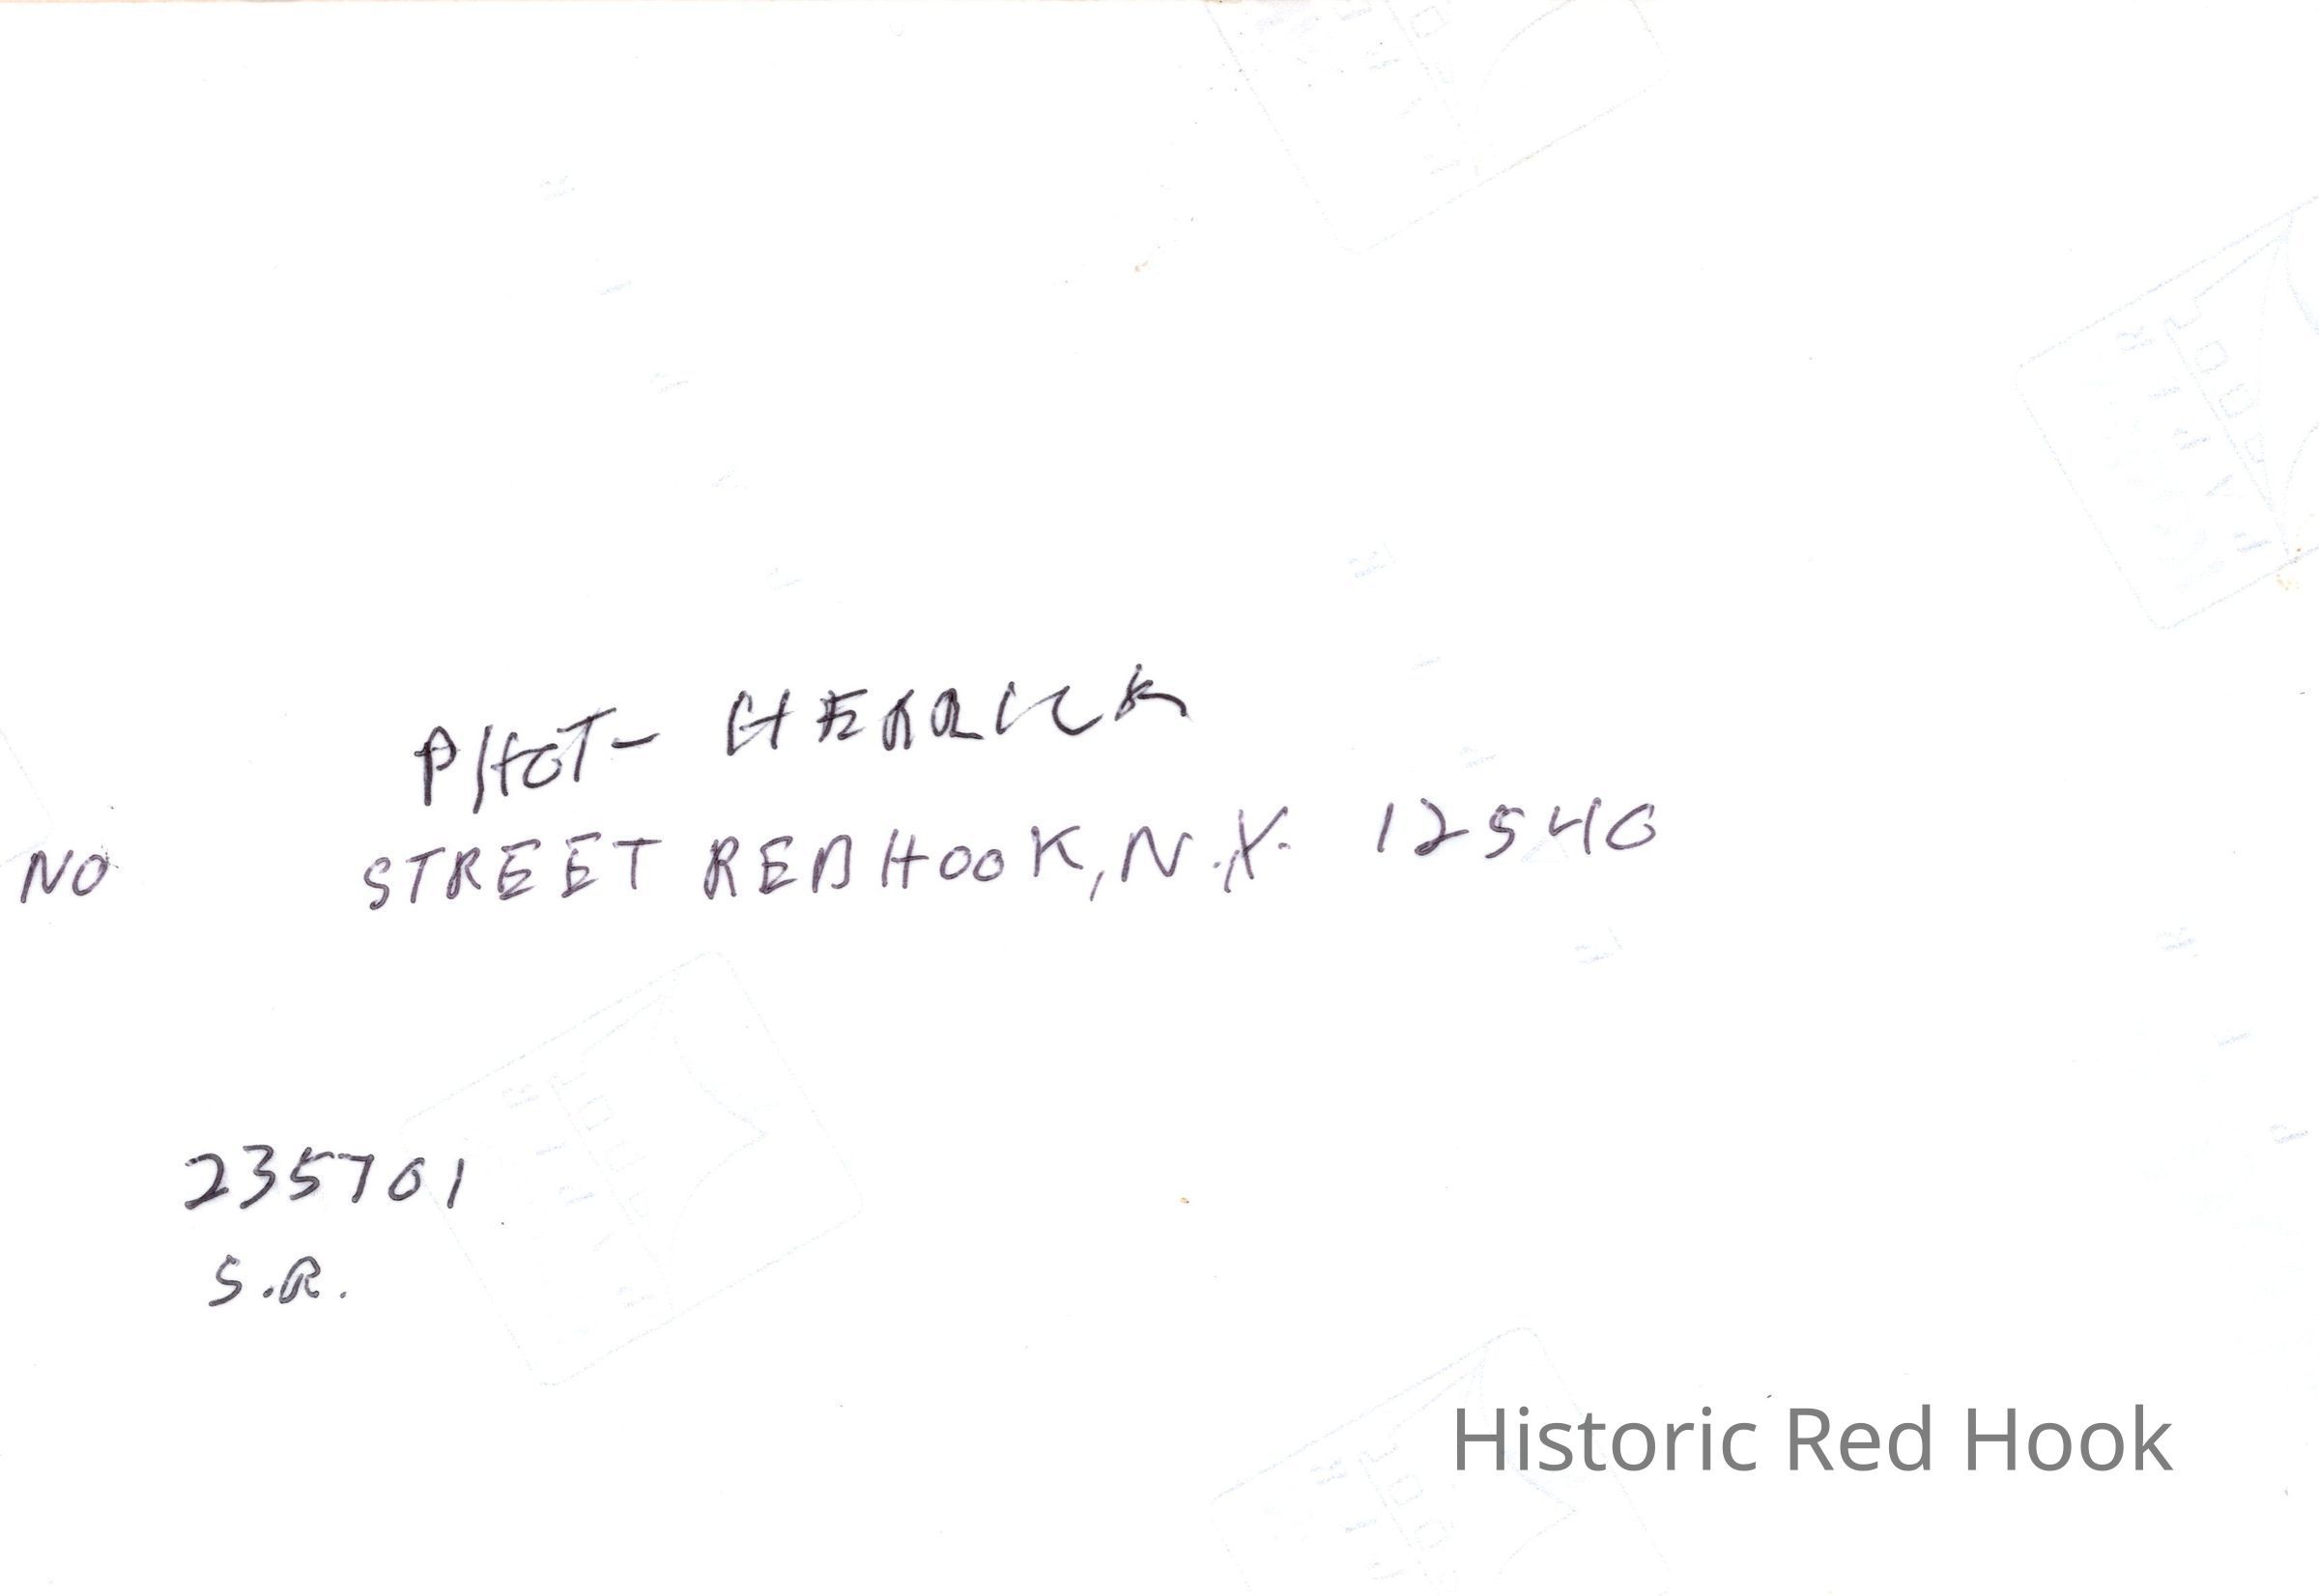 PHOT- HERRICK
NO STREET RED HOOK, N.Y. 12540
235701
S.R.
Historic Red Hook